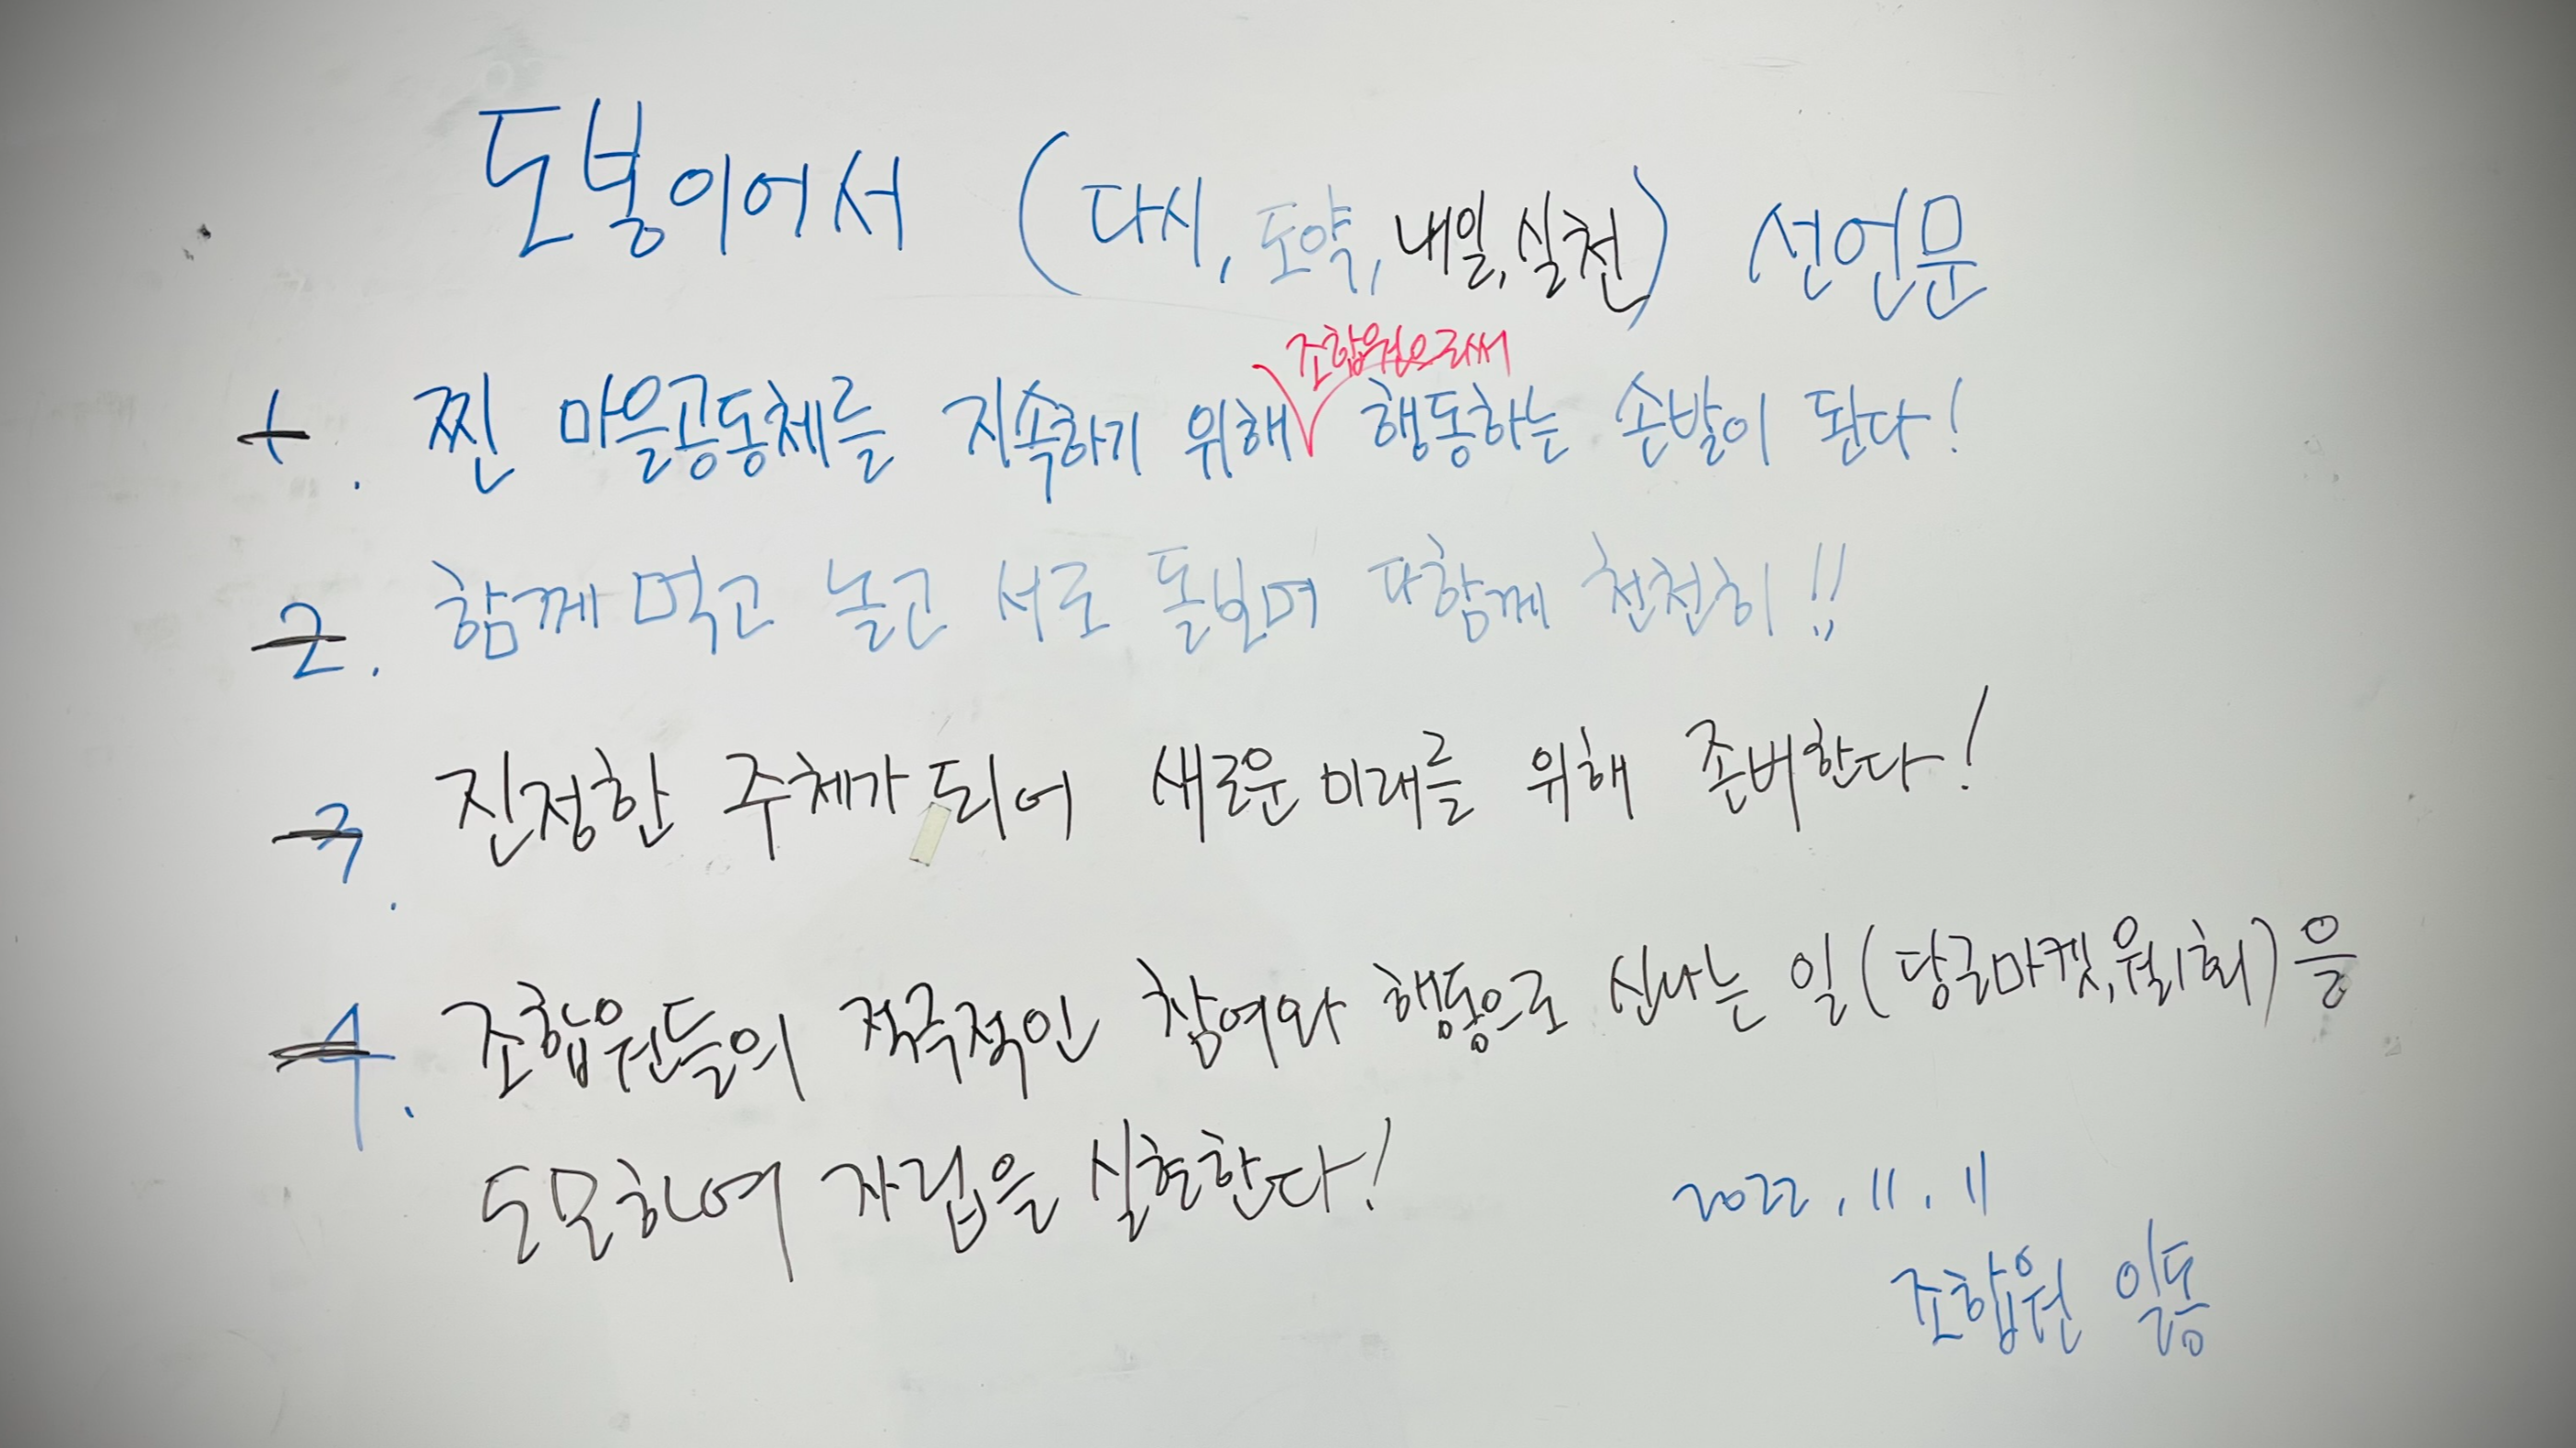 도봉이어서 (다시, 도약, 내일, 실천) 선언문
조합원으로써
1. 찐 마을공동체를 지속하기 위해 행동하는 손발이 된다!
2. 함께 먹고 놀고 서로 돌보며 다함께 천천히!!
3. 진정한 주체가 되어 새로운 미래를 위해 존버한다!
4. 조합원들의 적극적인 참여와 행동으로 신나는 일(당글마켓, 월1회)을
도모하여 자립을 실현한다!
2022. 11. 11
조합원 일동